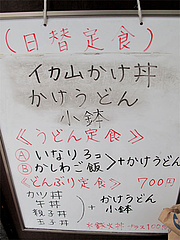 (日替定食)
イカ山かけ丼
かけうどん
小鉢
≪うどん定食≫
Ⓐ いなり2コ
Ⓑ かしわご飯 >+かけうどん
≪どんぶり定食≫ 700円
カツ丼
牛丼
親子丼
玉子丼
+かけうどん
小鉢
100円